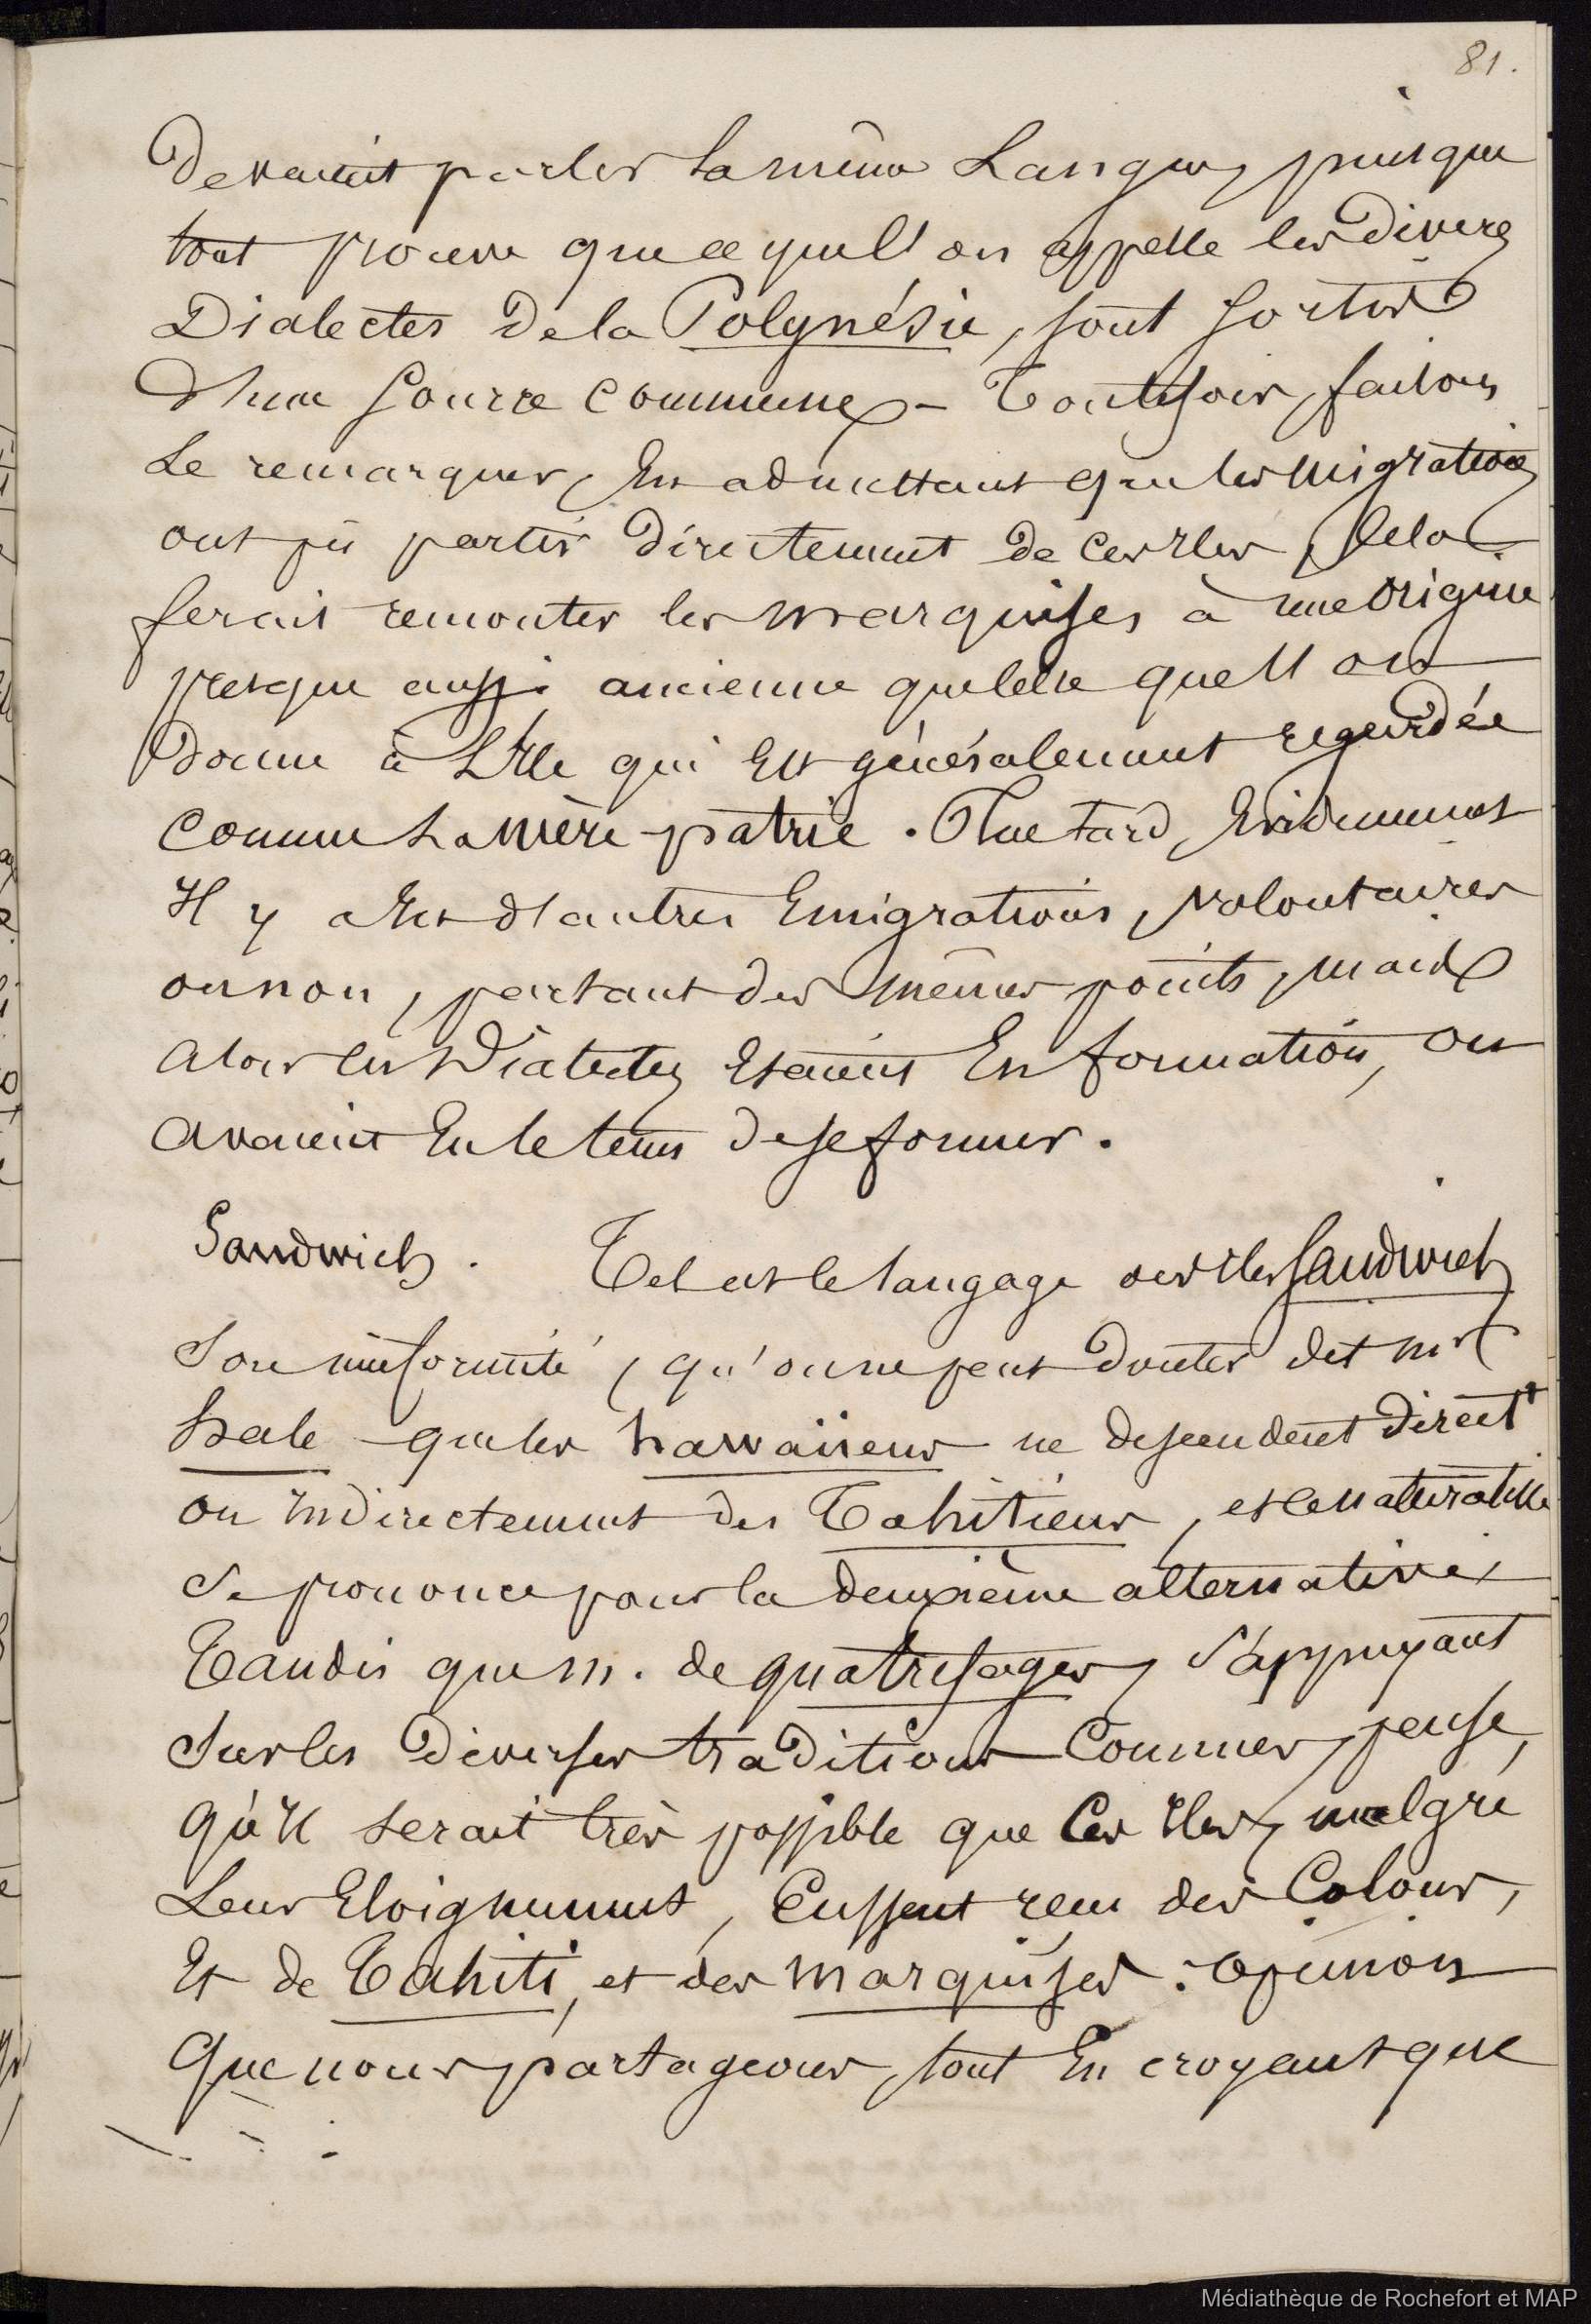 81.
Devaient parler la même Langue, puisque
tout prouve que ce que l'on appelle les Divers
Dialectes De la Polynésie, sont sortis
D'une source commune. - Toutefois, faisons
Le remarquer, En admettant que les migrations
ont pû partir Directement de ces Iles, cela
ferait remonter les marquises à une Origine
presque aussi ancienne que celle que l'on
Donne à L'Ile qui Est généralement regardée
comme La mère-patrie. Plus tard, Evidemment
Il y a eu d'autres Emigrations, volontaires
ou non, partant des mêmes points, mais
alors les Dialectes Etaient En formation, ou
avaient Eu le tems de se former.
Sandwich. Tel est le langage des Iles Sandwich
Son uniformité, qu'on ne peut Douter dit mr
hale que les hawaiiens ne descendent Direct.t
ou Indirectement des Tahitiens, et ce naturaliste
se prononce pour la deuxième alternative
Tandis que m. de quatrefages, s'appuyant
sur les Diverses traditions Connues, pense,
qu'Il serait très possible que Ces Iles, malgré
Leur Eloignement, Eussent reçu des Colons,
Et de Tahiti, et des marquises : opinion
Que nous partageons, tout En croyant que
Médiathèque de Rochefort et MAP